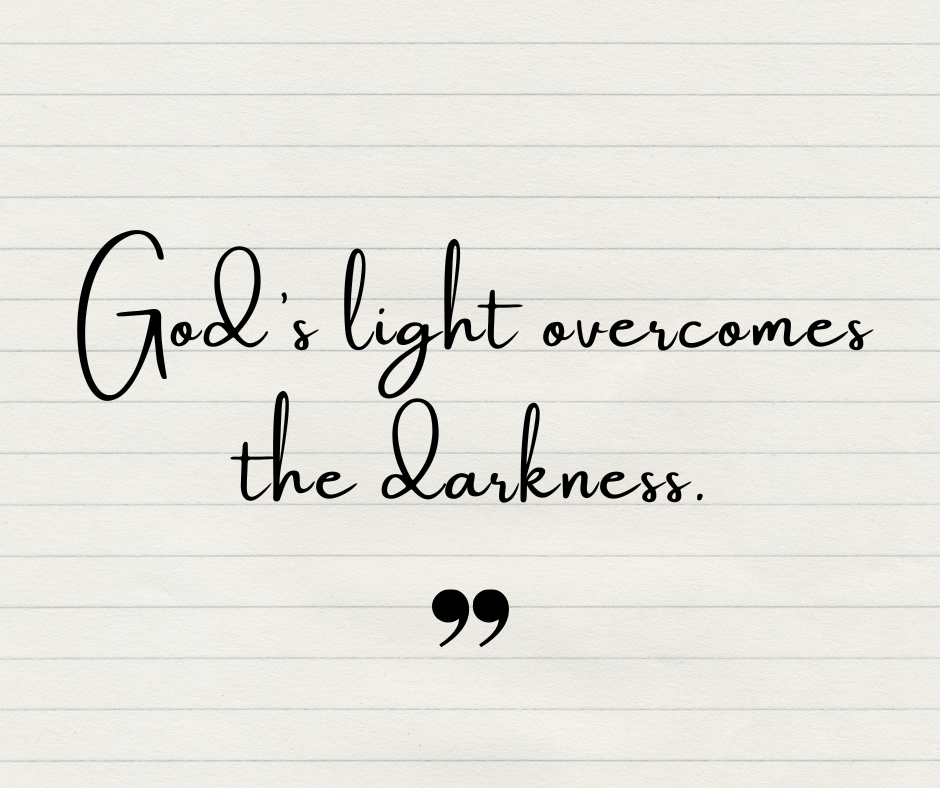 God's light overcomes
the darkness.
”